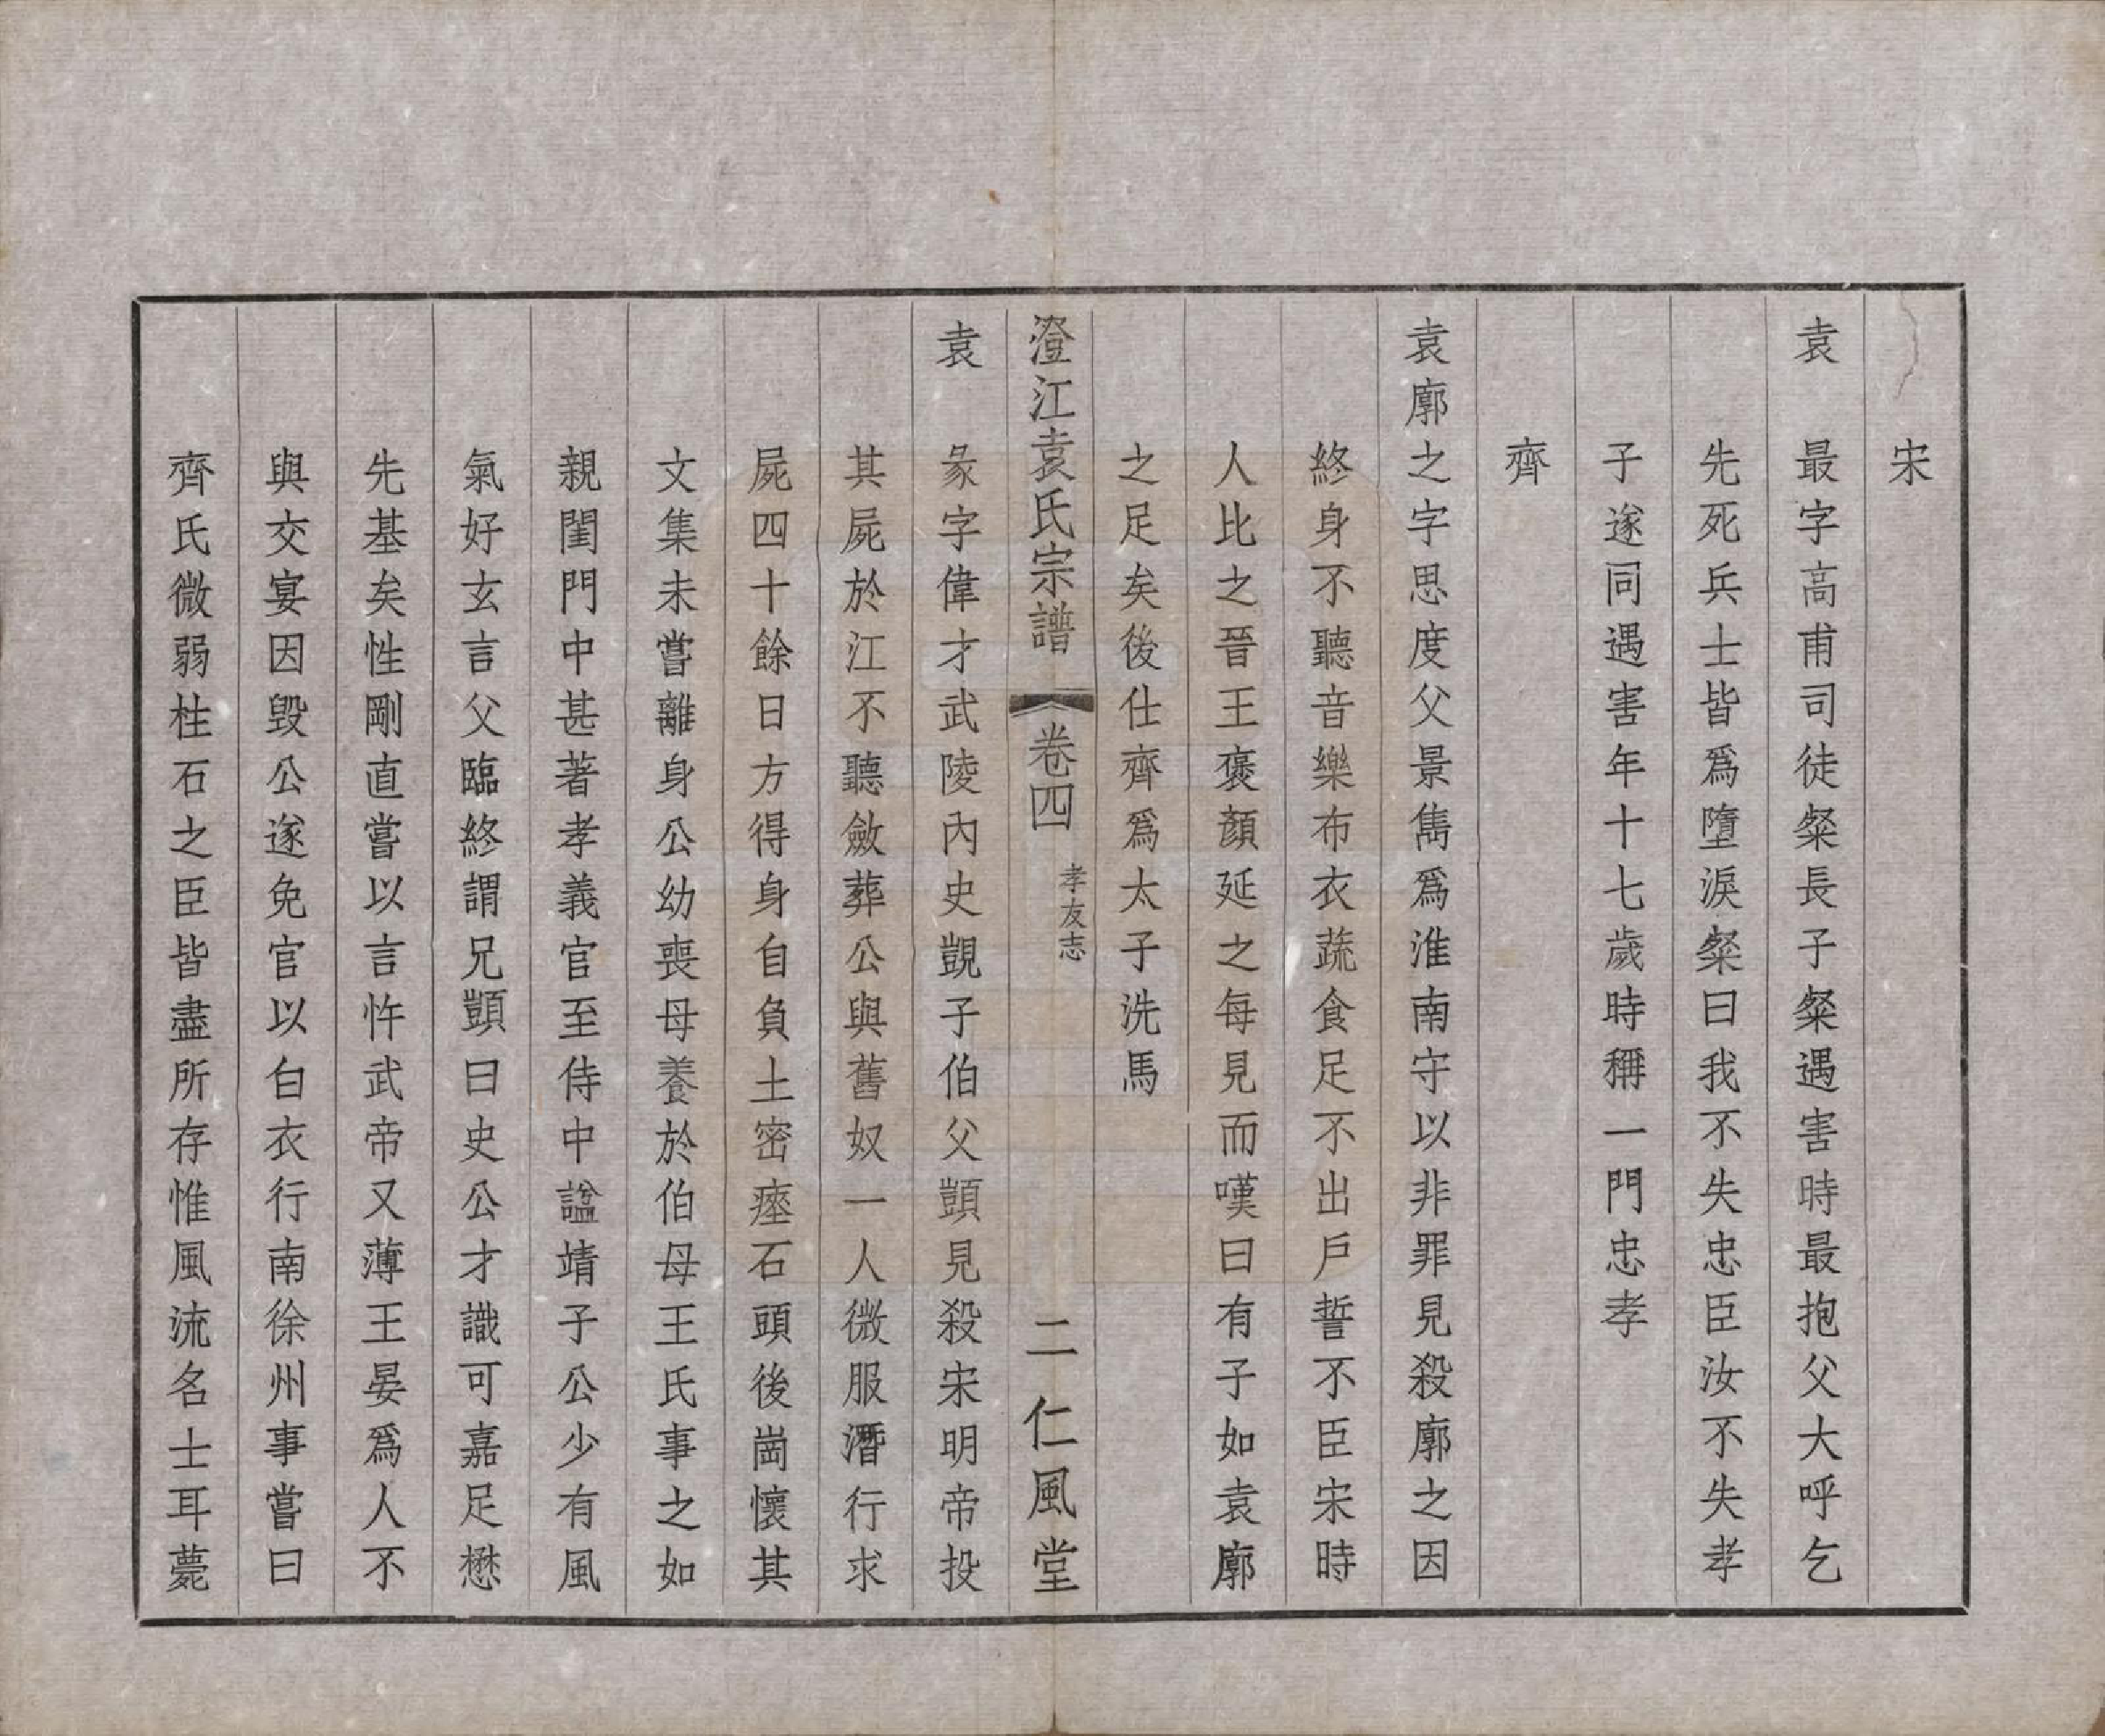 宋
袁　最字高甫司徒粲長子粲遇害時最抱父大呼乞
先死兵士皆爲墮淚粲曰我不失忠臣汝不失孝
子遂同遇害年十七歲時稱一門忠孝
齊
袁廓之字思度父景雋爲淮南守以非罪見殺廓之因
終身不聽音樂布衣蔬食足不出戶誓不臣宋時
人比之晉王褒顏延之每見而嘆曰有子如袁廓
之足矣後仕齊爲太子洗馬
澄江袁氏宗譜　卷四　孝友志　二　仁風堂
袁　彖字偉才武陵內史覬子伯父顗見殺宋明帝投
其屍於江不聽斂葬公與舊奴一人微服潛行求
屍四十餘日方得身自負土密瘞石頭後崗懷其
文集未嘗離身公幼喪母養於伯母王氏事之如
親閨門中甚著孝義官至侍中諡靖子公少有風
氣好玄言父臨終謂兄顗曰史公才識可嘉足懋
先基矣性剛直嘗以言忤武帝又薄王晏爲人不
與交宴因毀公遂免官以白衣行南徐州事嘗曰
齊氏微弱柱石之臣皆盡所存惟風流名士耳薨